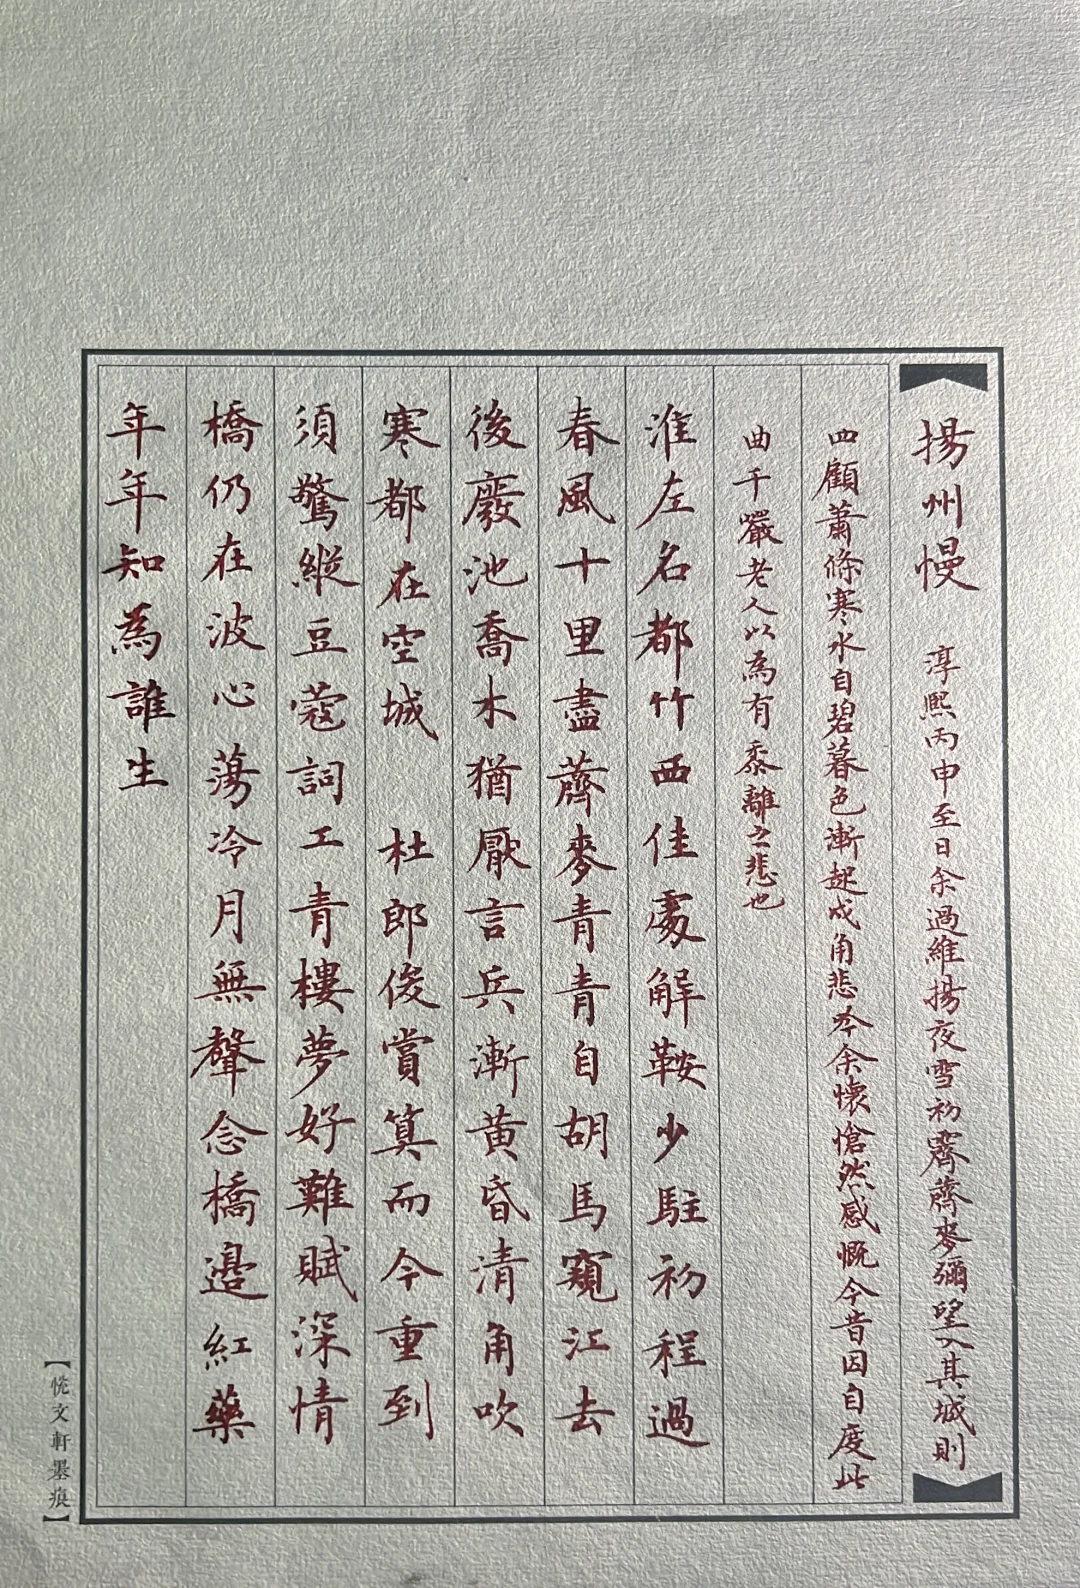 揚州慢　淳熙丙申至日余過維揚夜雪初霽薺麥彌望入其城則
四顧蕭條寒水自碧暮色漸起戍角悲吟余懷愴然感慨今昔因自度此
曲千巖老人以為有黍離之悲也
淮左名都竹西佳處解鞍少駐初程過
春風十里盡薺麥青青自胡馬窺江去
後廢池喬木猶厭言兵漸黃昏清角吹
寒都在空城　杜郎俊賞算而今重到
須驚縱豆蔻詞工青樓夢好難賦深情
橋仍在波心蕩冷月無聲念橋邊紅藥
年年知為誰生
【恍文軒墨痕】